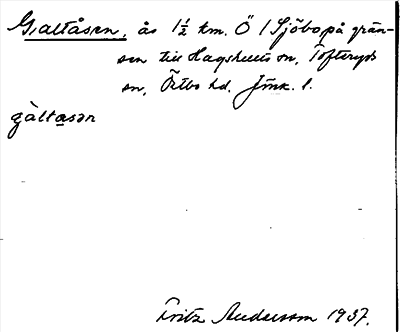 Galtåsen, ås 1½ km. Ö / Sjöbo, på grän-
sen till Hagshults sn, Tofteryds
sn, Östbo hd. Jönk. l.
gàltasən
Fritz Andersson 1937.